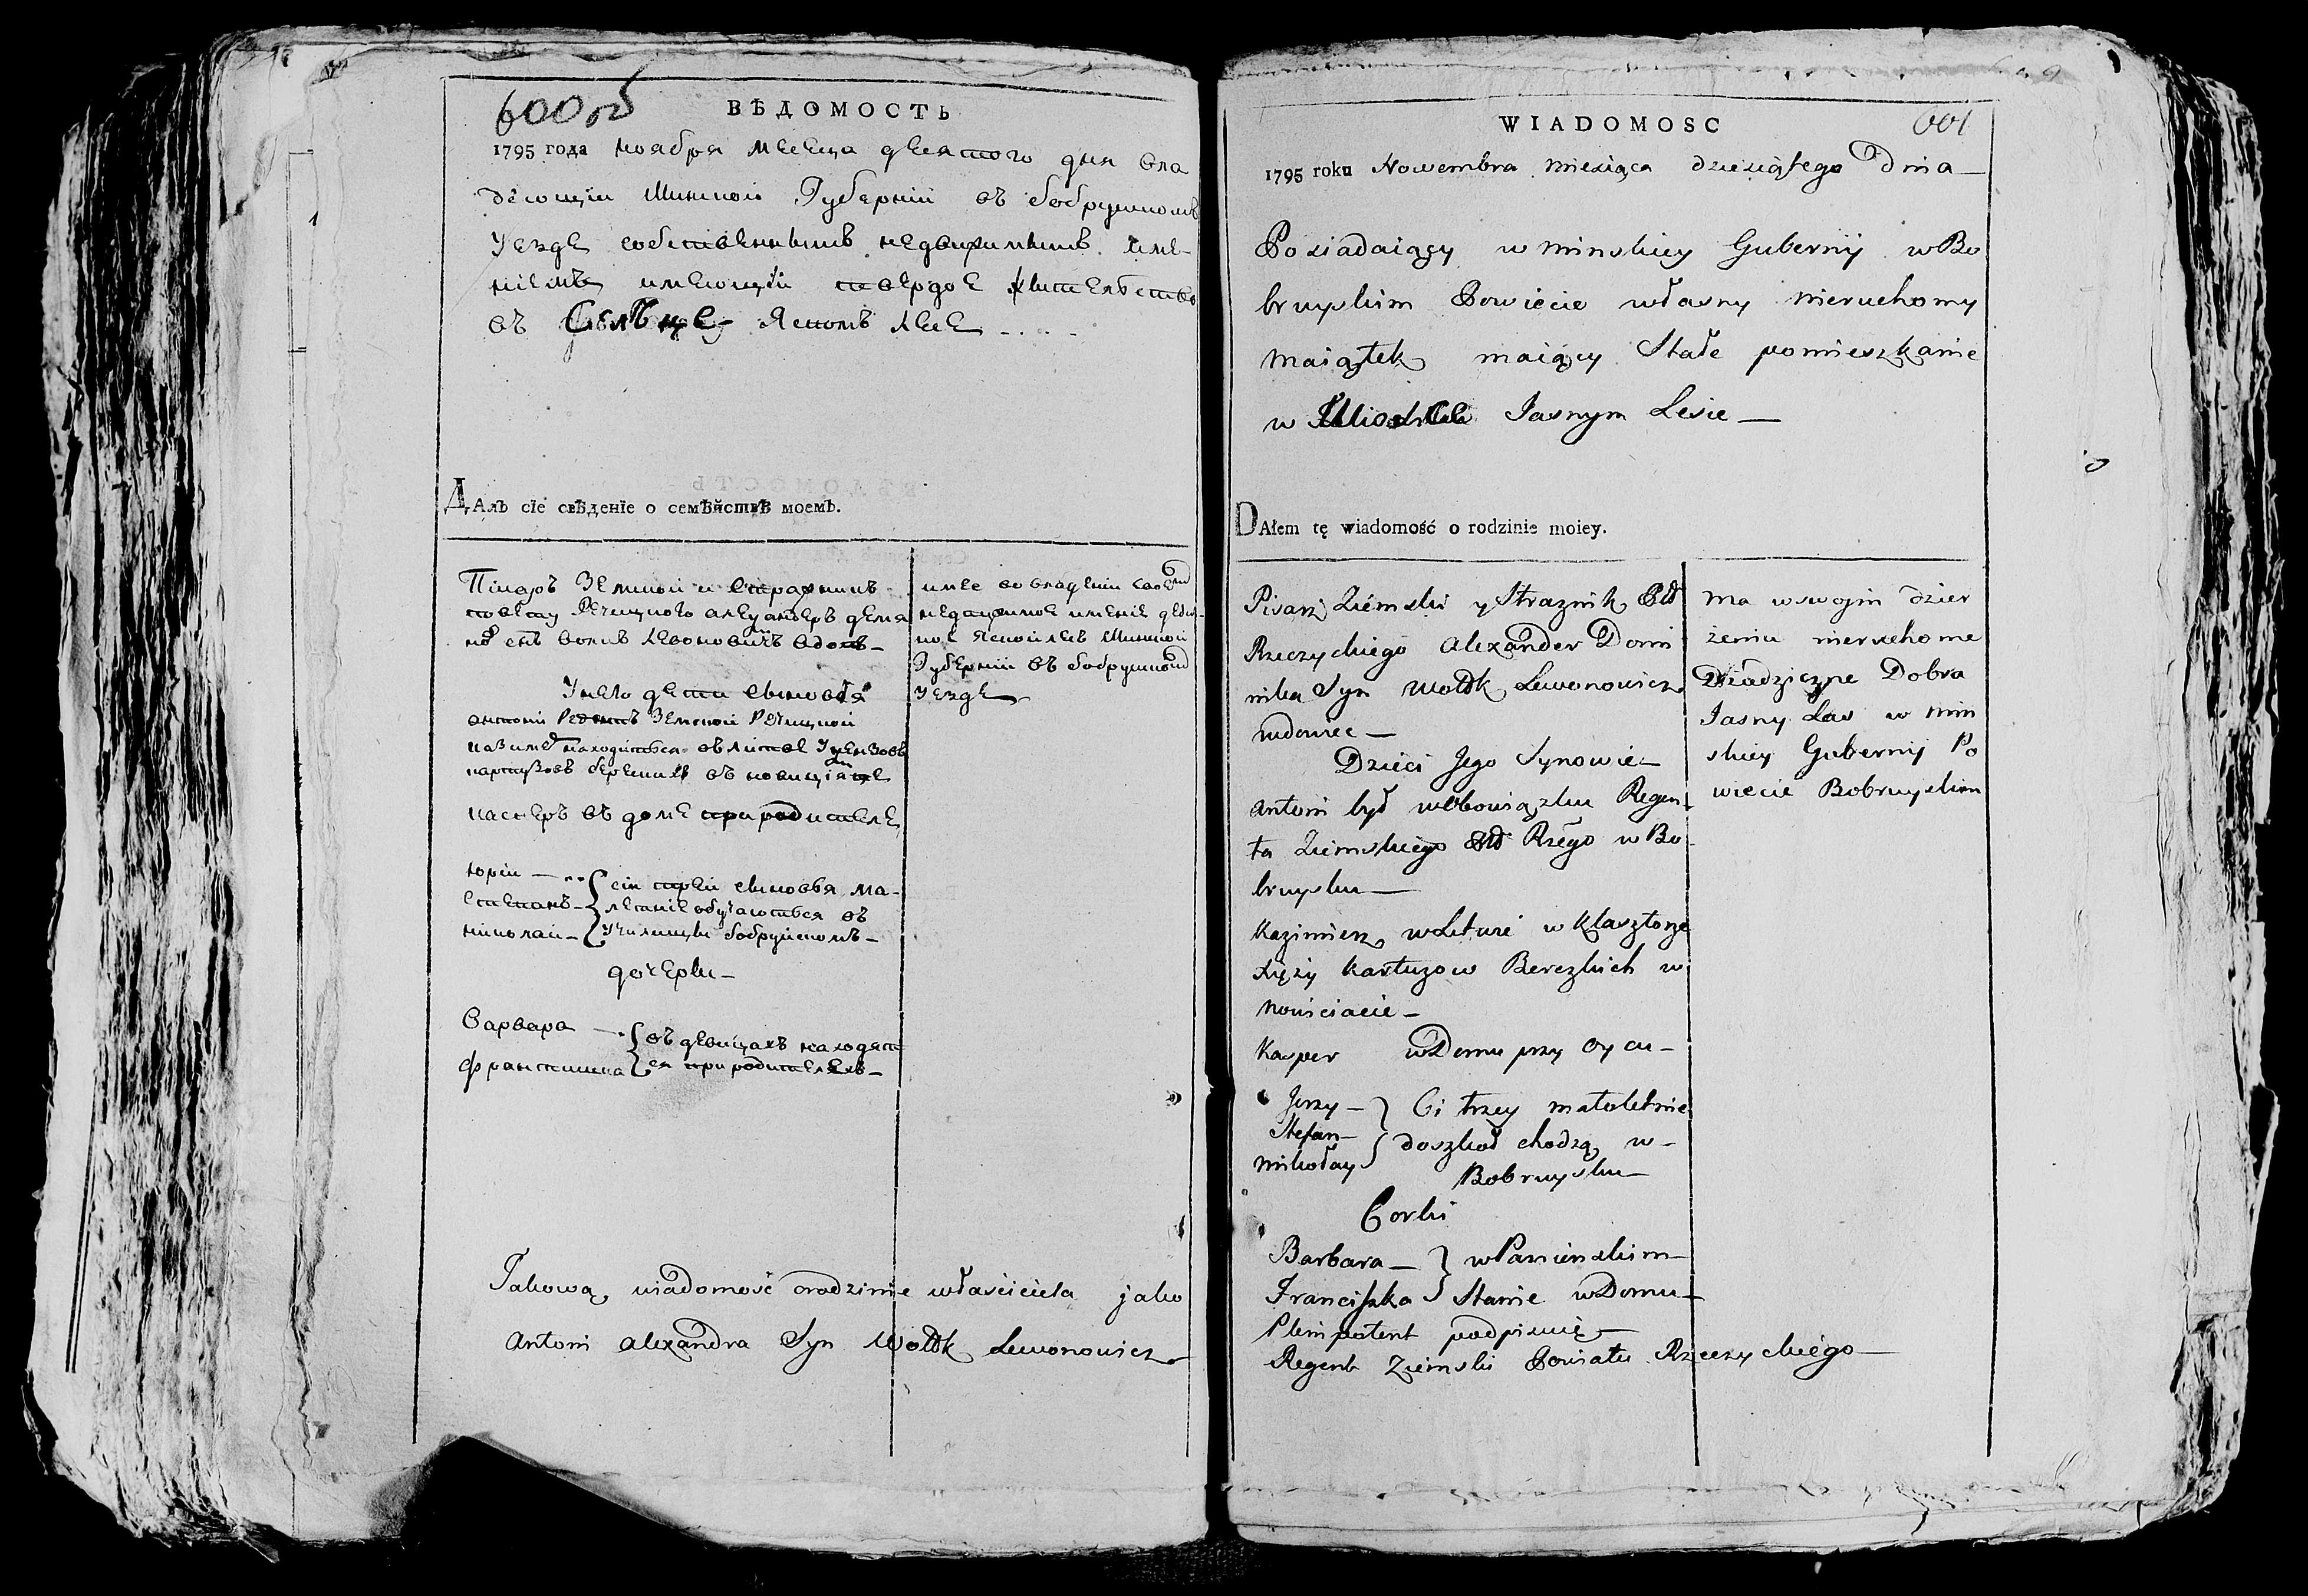 600об
ВѢДОМОСТЬ
1795 года ноября месеца десятого дня вла
деющiи Минской Губернiи въ бобруискомъ
уезде собственнымъ недвижимымъ име-
нiемъ имеющiи твердое жительство
въ Сельце Ясномъ лесе
ДАлъ сїе свѣденїе о семѣйствѣ моемъ.
Писаръ Земской и Стражникъ
повету Речицкого александеръ домѣни
ка сынъ волкъ левоновичъ вдовъ
Унего дети сыновья
антонiй Регентъ Земской Речицкой
казимѣ находится въ литве у ксензовъ
картузовъ березкихъ въ новициате
касперъ въ доме при родителе
юрiи
степанъ
николаи
сiи трѣи сыновья ма-
летнiе обучаются въ
училищи бобруискомъ
дочерьи
Варвара
франтишка
въ девицахъ находят
ся при родителяхъ
имее во владенiи своемъ
недвижимое именiе дедич-
ное Яснои лесъ Минской
Губернiи въ бобруискомъ
уезде
Takową wiadomość o rodzinie właściciela jako
Antoni Alexandra Syn Wołdk Lewonowicz
WIADOMOSC
601
1795 roku Nowembra miesiąca dziesiątego Dnia
Posiadaiący w minskiey Gubernij w Bo
bruyskim Powiecie własny nieruchomy
maiątek maiący Stałe pomieszkanie
w Jasnym Lesie
DAłem tę wiadomość o rodzinie moiey.
Pisarz Ziemski y Strażnik Ptd
Rzeczyckiego Alexander Domi
nika Syn Wołdk Lewonowicz
wdowiec
Dzieci Jego Synowie
Antoni był w obowiązku Regen-
ta Ziemskiego Ptd Rzego w Bo
bruysku
Kazimierz w Litwie w Klasztorze
Xięży Kartuzow Berezkich w
nowiciacie
Kasper w Domu przy Oycu
Jerzy
Stefan
Mikołay
Ci trzey małoletnie
do szkoł chodzą w
Bobruysku
Corki
Barbara
Franciszka
w Panienskim
Stanie w Domu
Plenipotent podpisuię
Regent Ziemski Powiatu Rzeczyckiego
ma w swojm dzier
żeniu nieruchome
Dziadziczne Dobra
Jasny Las w Min
skiey Gubernij Po
wiecie Bobruyskim